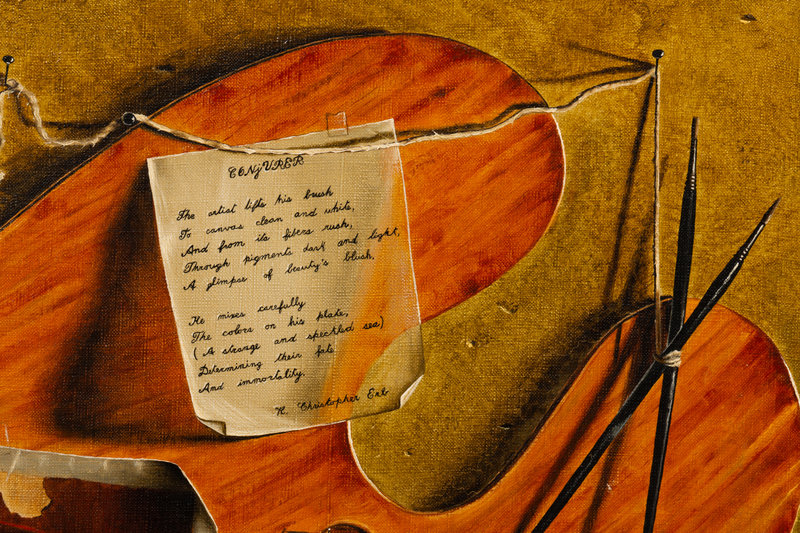 CONJURER
The artist lifts his brush
To canvas clean and white,
And from its fibers rush,
Through pigments dark and light,
A glimpse of beauty's blush.
He mixes carefully
The colors on his plate,
(A strange and speckled sea)
Determining their fate
And immortality.
Christopher